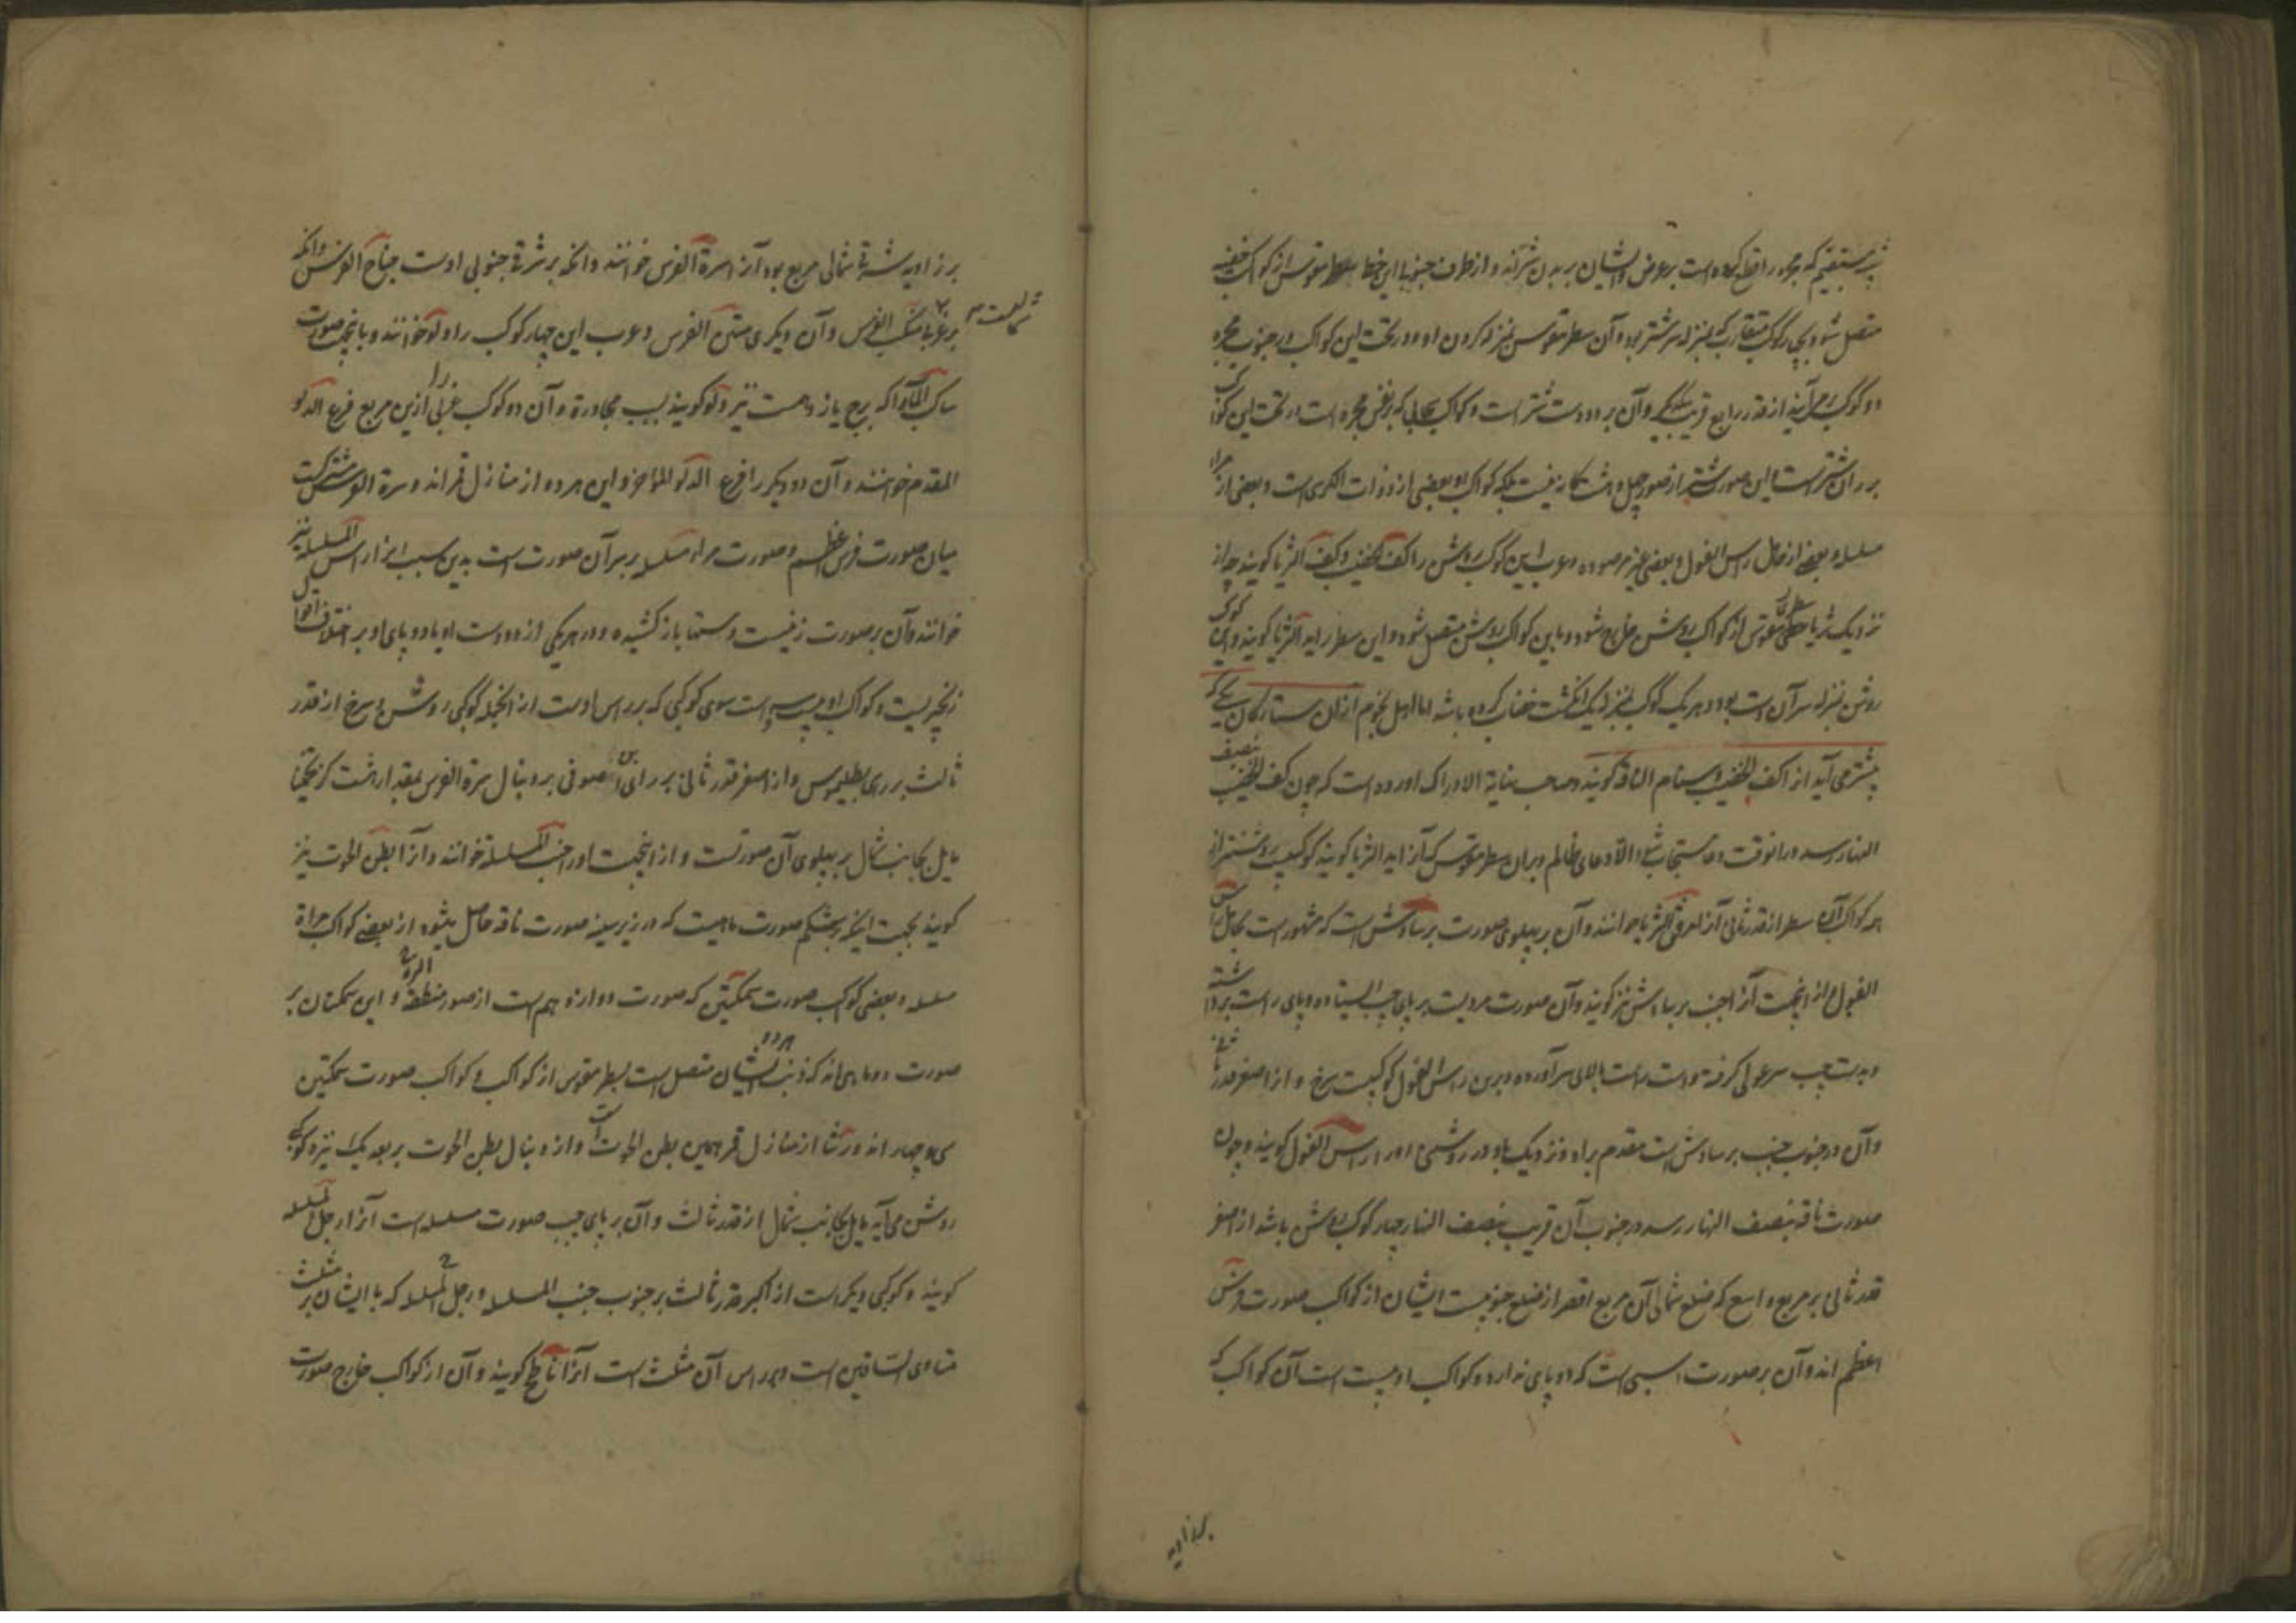 متصل شود و بچهار کوکب متقارب که بمنزله سر شتر بود و آن سطر مقوس بمنزله کردن او و در تحت این کواکب در جنوب مجره
دو کوکب می آیند از قدر رابع قریب بیکدیگر و آن بر دو دست شتر است و کواکب سحابی که بر نفس مجره است در تحت این کوکب
بر ران شتر است و این صورت شتر از صور چهل و هشت کانه نیست بلکه کواکب او بعضی از ذات الکرسی است و بعضی از مراه
مسلسله و بعضی از حامل راس الغول و بعضی غیر مرصوده و عرب این کوکب روشن را کف الخضیب و کف الثریا کویند چه از
نزدیک ثریا سطری مقوس از کواکب روشن خارج شود و باین کواکب روشن متصل شود و این سطر را ید الثریا کویند و این کوکب
روشن بمنزله سر آن دست بود و هر یک کوکب بمنزله یک انکشت خضاب کرده باشد اما اهل نجوم از آن ستارکان یکی که
پیشتر می آید از اکف الخضیب و سنام الناقه کویند و صاحب نهایة الادراک آورده است که چون کف الخضیب بنصف
النهار رسد در آنوقت دعا مستجاب شود الا دعای ظالم و بر آن سطر مقوس که آنرا ید الثریا کویند کوکبیست روشنتر از
همه کواکب آن سطر از قدر ثانی آنرا مرفق الثریا خوانند و آن بر پهلوی صورت برساوش است که مشهور است بحامل راس
الغول و از اینجهت آنرا جنب برساوش نیز کویند و آن صورت مردیست بر پای چپ ایستاده و پای راست برداشته
و بدست چپ سر غولی کرفته و دست راست بالای سر آورده و برین راس الغول کوکبیست سرخ و از اصغر قدر ثانی
و آن در جنوب جنب برساوش است مقدم براو و نزدیک باو در روشنی و او را راس الغول کویند و چون
صورت ناقه بنصف النهار رسد در جنوب آن قریب بنصف النهار چهار کوکب روشن باشد از اصغر
قدر ثانی بر مربع واسع که ضلع شمالی آن مربع اقصر از ضلع جنوبیست ایشان از کواکب صورت فرس
اعظم اند و آن بر صورت اسبی است که دو پای ندارد و کواکب او بیست است آن کواکب که
بر زاویه
بر زاویه شرقی شمالی مربع بود آنرا سرة الفرس خوانند و انکه بر شرقی جنوبی اوست جناح الفرس و انکه
بر غربی شمالیست منکب الفرس و آن دیکری متن الفرس و عرب این چهار کوکب را دلو خوانند و باینجهت صورت
ساکب الماء را که برج یازدهمست نیز دلو کویند بسبب مجاورة و آن دو کوکب غربی را ازین مربع فرغ الدلو
المقدم خوانند و آن دو دیکر را فرغ الدلو المؤخر و این هر دو از منازل قمراند و سرة الفرس مشترکست
میان صورت فرس اعظم و صورت مراه مسلسله بر سر آن صورت است بدین سبب انرا راس المسلسله نیز
خوانند و آن بر صورت زنیست دستها باز کشیده و در هر یکی از دو دست او یا دو پای او بر اختلاف اقوال
زنجیریست و کواکب او بیست و سه است سوی کوکبی که بر راس اوست از انجمله کوکبی روشن و سرخ از قدر
ثالث بر رای بطلیموس و از اصغر قدر ثانی بر رای ابن صوفی بر دنبال سرة الفرس بمقدار هشت کز تخمینا
مایل بجانب شمال بر پهلوی آن صورتست و از اینجهت اورا جنب المسلسله خوانند و آنرا بطن الحوت نیز
کویند بجهت اینکه بر شکم صورت ماهیست که در زیر سینه صورت ناقه حاصل میشود از بعضی کواکب مراة
مسلسله و بعضی کوکب صورت سمکتین که صورت دوازدهم است از صور منطقة البروج و این سمکتان بر
صورت دو ماهی اند که ذنب هر دو ایشان متصل است بسطر مقوس از کواکب و کواکب صورت سمکتین
سی و چهار اند و رشا از منازل قمر همین بطن الحوت است و از دنبال بطن الحوت بر بعد یک نیزه کوکبی
روشن می آید مایل بجانب شمال از قدر ثالث و آن بر پای چپ صورت مسلسله است آنرا رجل المسلسله
کویند و کوکبی دیکر است از اکبر قدر ثالث بر جنوب جنب المسلسله و رجل المسلسله که با ایشان بر مثلث
متساوی الساقین است و بر راس آن مثلث است آنرا ناطح کویند و آن از کواکب خارج صورت